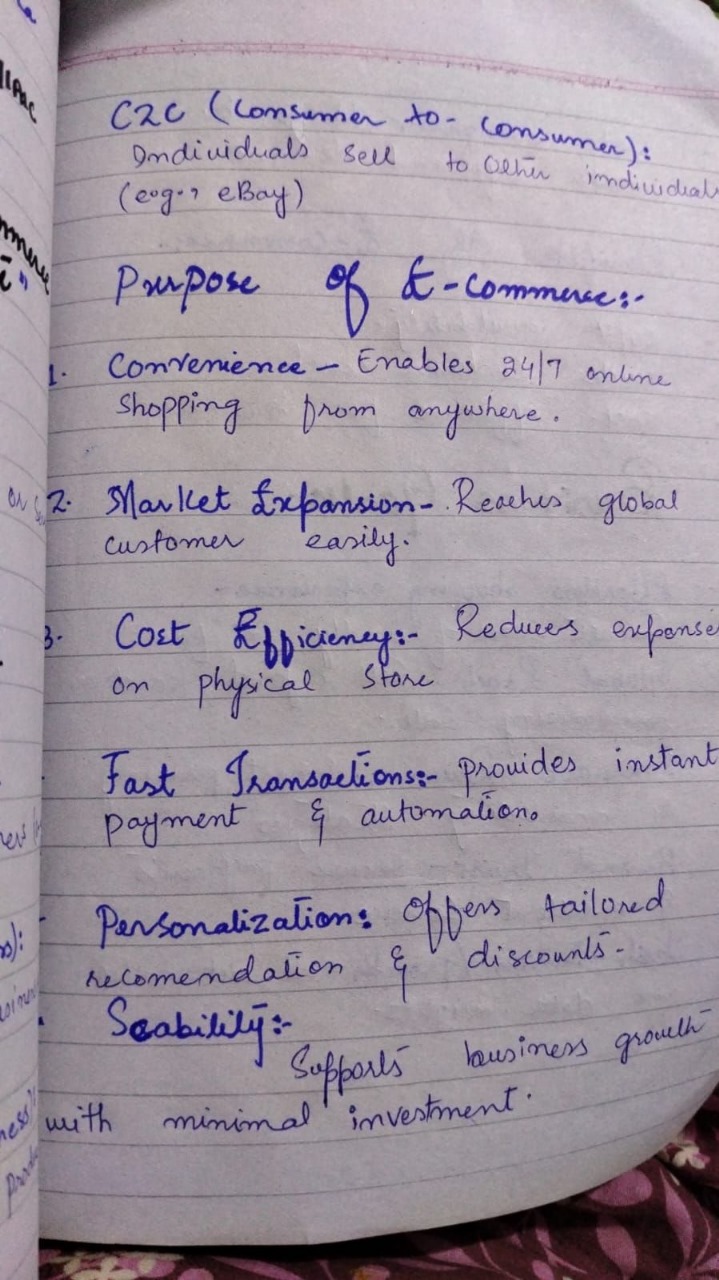 C2C (Consumer to- Consumer):
Individuals sell to Other individuals
(e.g., eBay)
Purpose of E-commerce:-
1. Convenience - Enables 24/7 online
Shopping from anywhere.
2. Market Expansion- Reaches global
customer easily.
3. Cost Efficiency:- Reduces expense
on physical Store
Fast Transactions:- provides instant
payment & automation.
Personalization: Offers tailored
recomendation & discounts-
Scability:-
Supports business growth
with minimal investment.